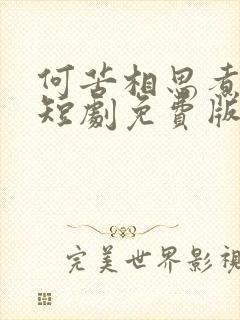 何苦相思煮
短劇免費版
完美世界影視